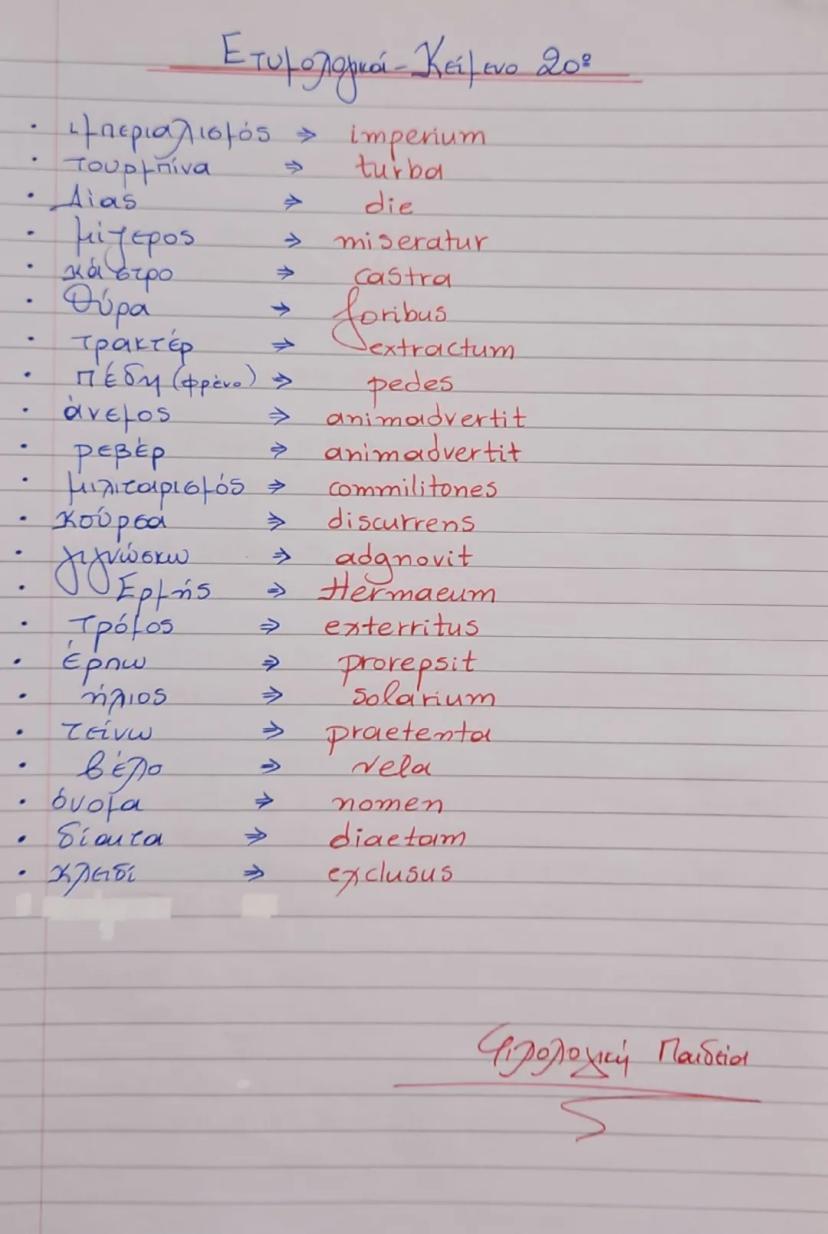 Ετυμολογικά - Κείμενο 20º
· ιμπεριαλισμός ⇒ imperium
· τουρμπίνα ⇒ turba
· Δίας ⇒ die
· μίζερος ⇒ miseratur
· κάστρο ⇒ castra
· θύρα → foribus
· τρακτέρ ⇒ extractum
· πέδη (φρένο) ⇒ pedes
· άνεμος ⇒ animadvertit
· ρεβέρ ⇒ animadvertit
· μιλιταρισμός ⇒ commilitones
· κούρσα ⇒ discurrens
· γιγνώσκω ⇒ adgnovit
· Ερμής ⇒ Hermaeum
· τρόμος ⇒ exterritus
· έρπω ⇒ prorepsit
· ήλιος ⇒ solarium
· τείνω ⇒ praetenta
· βέλο ⇒ vela
· όνομα ⇒ nomen
· δίαιτα ⇒ diaetam
· κλειδί ⇒ exclusus
Φιλολογική Παιδεία